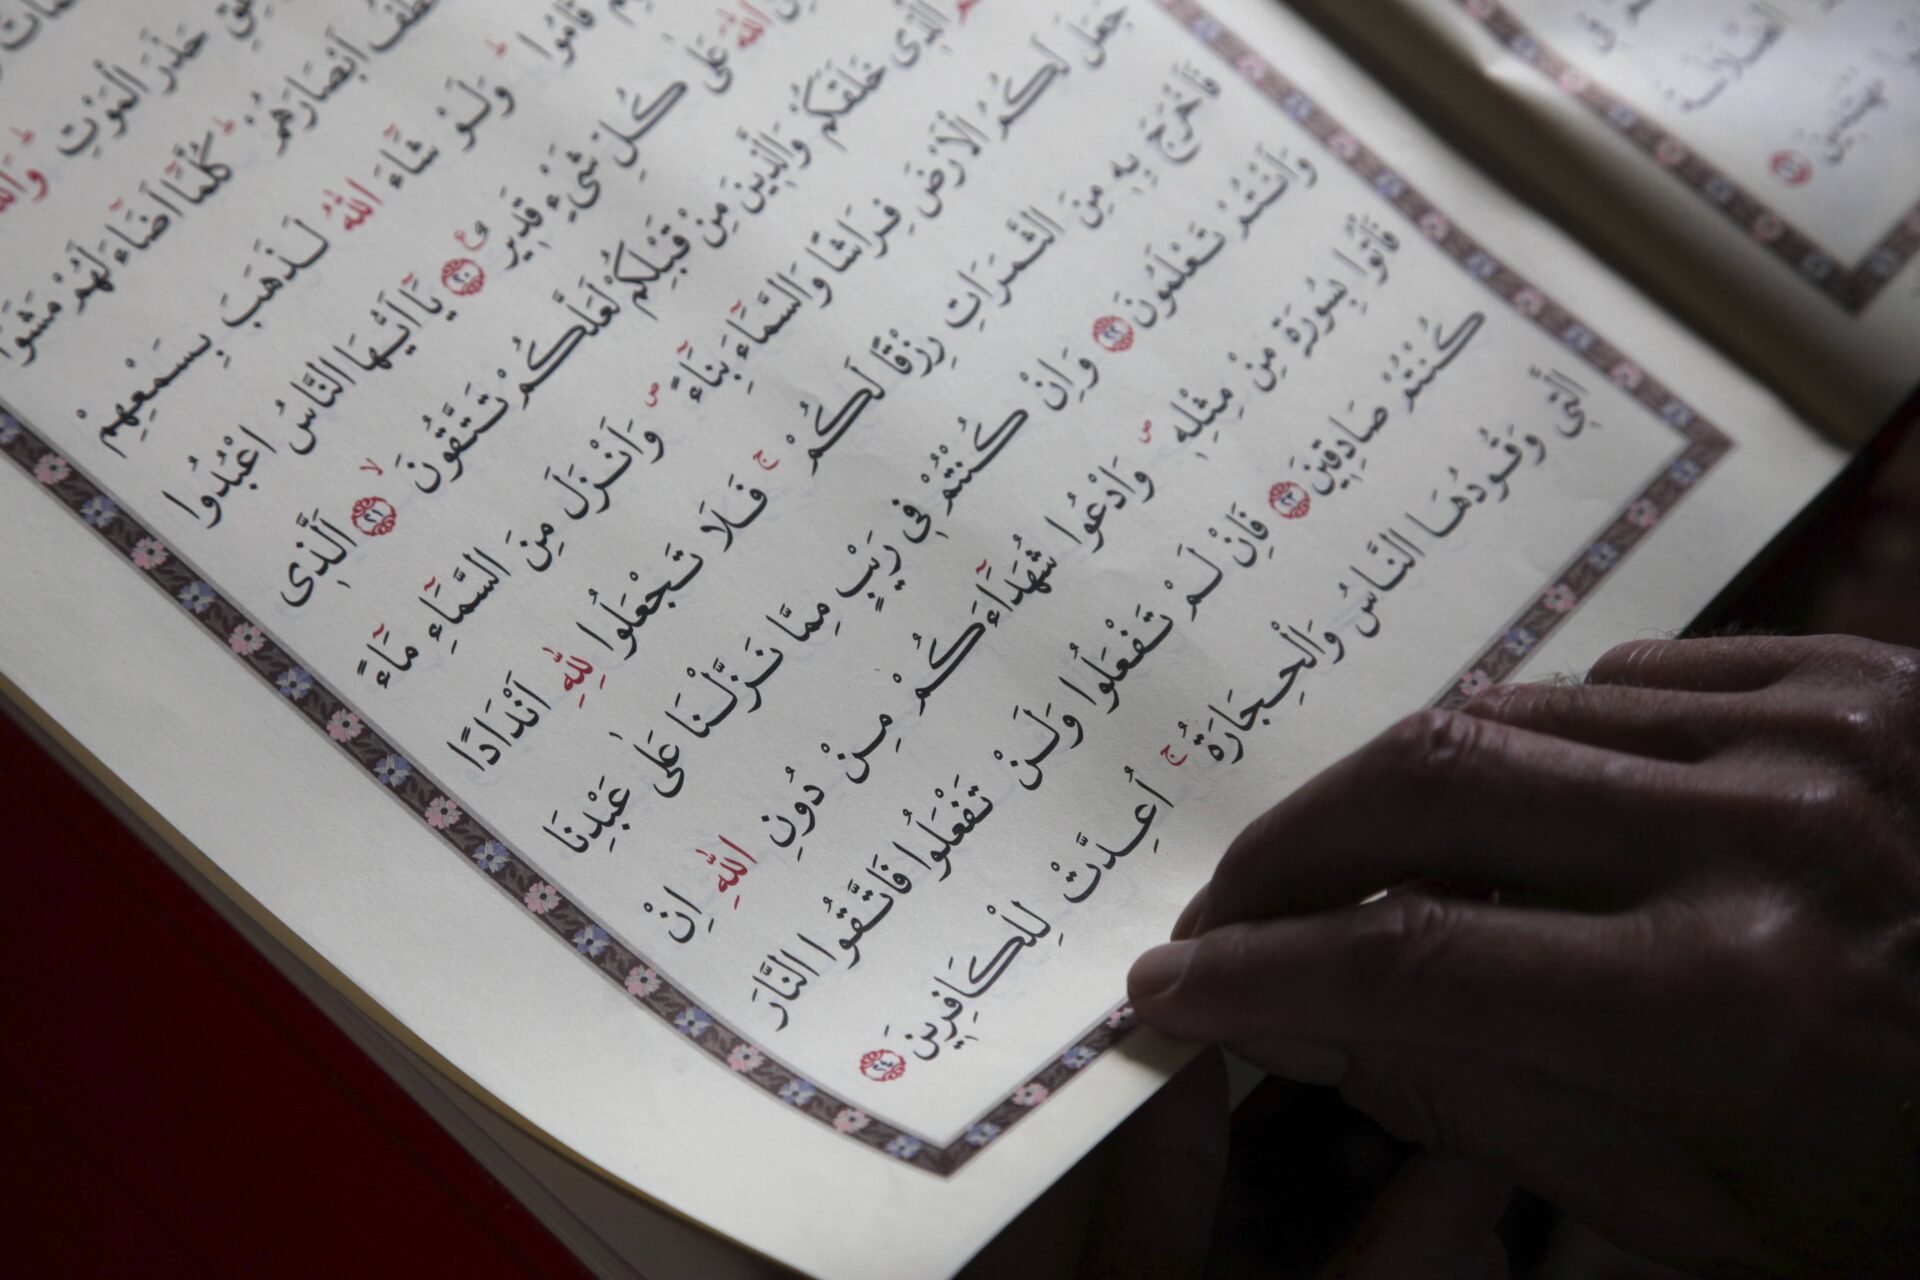 حَذَرَ الْمَوْتِ ۜ
اَبْصَارَهُمْ ۜ كُلَّمَٓا اَضَٓاءَ لَهُمْ مَشَوْا
قَامُوا ۜ وَلَوْ شَٓاءَ اللّٰهُ لَذَهَبَ بِسَمْعِهِمْ
اللّٰهَ عَلٰى كُلِّ شَىْءٍ قَدِيرٌ ﴿٢٠﴾ يَٓا اَيُّهَا النَّاسُ اعْبُدُوا
الَّذِى خَلَقَكُمْ وَالَّذِينَ مِنْ قَبْلِكُمْ لَعَلَّكُمْ تَتَّقُونَ ۙ ﴿٢١﴾ اَلَّذِى
جَعَلَ لَكُمُ الْاَرْضَ فِرَاشًا وَالسَّمَٓاءَ بِنَٓاءً ۖ وَاَنْزَلَ مِنَ السَّمَٓاءِ مَٓاءً
فَاَخْرَجَ بِهِ مِنَ الثَّمَرَاتِ رِزْقًا لَكُمْ ۚ فَلَا تَجْعَلُوا لِلّٰهِ اَنْدَادًا
وَاَنْتُمْ تَعْلَمُونَ ﴿٢٢﴾ وَاِنْ كُنْتُمْ فِي رَيْبٍ مِمَّا نَزَّلْنَا عَلٰى عَبْدِنَا
فَأْتُوا بِسُورَةٍ مِنْ مِثْلِهِ ۖ وَادْعُوا شُهَدَٓاءَكُمْ مِنْ دُونِ اللّٰهِ اِنْ
كُنْتُمْ صَادِقِينَ ﴿٢٣﴾ فَاِنْ لَمْ تَفْعَلُوا وَلَنْ تَفْعَلُوا فَاتَّقُوا النَّارَ
الَّتِي وَقُودُهَا النَّاسُ وَالْحِجَارَةُ ۚ اُعِدَّتْ لِلْكَافِرِينَ ﴿٢٤﴾